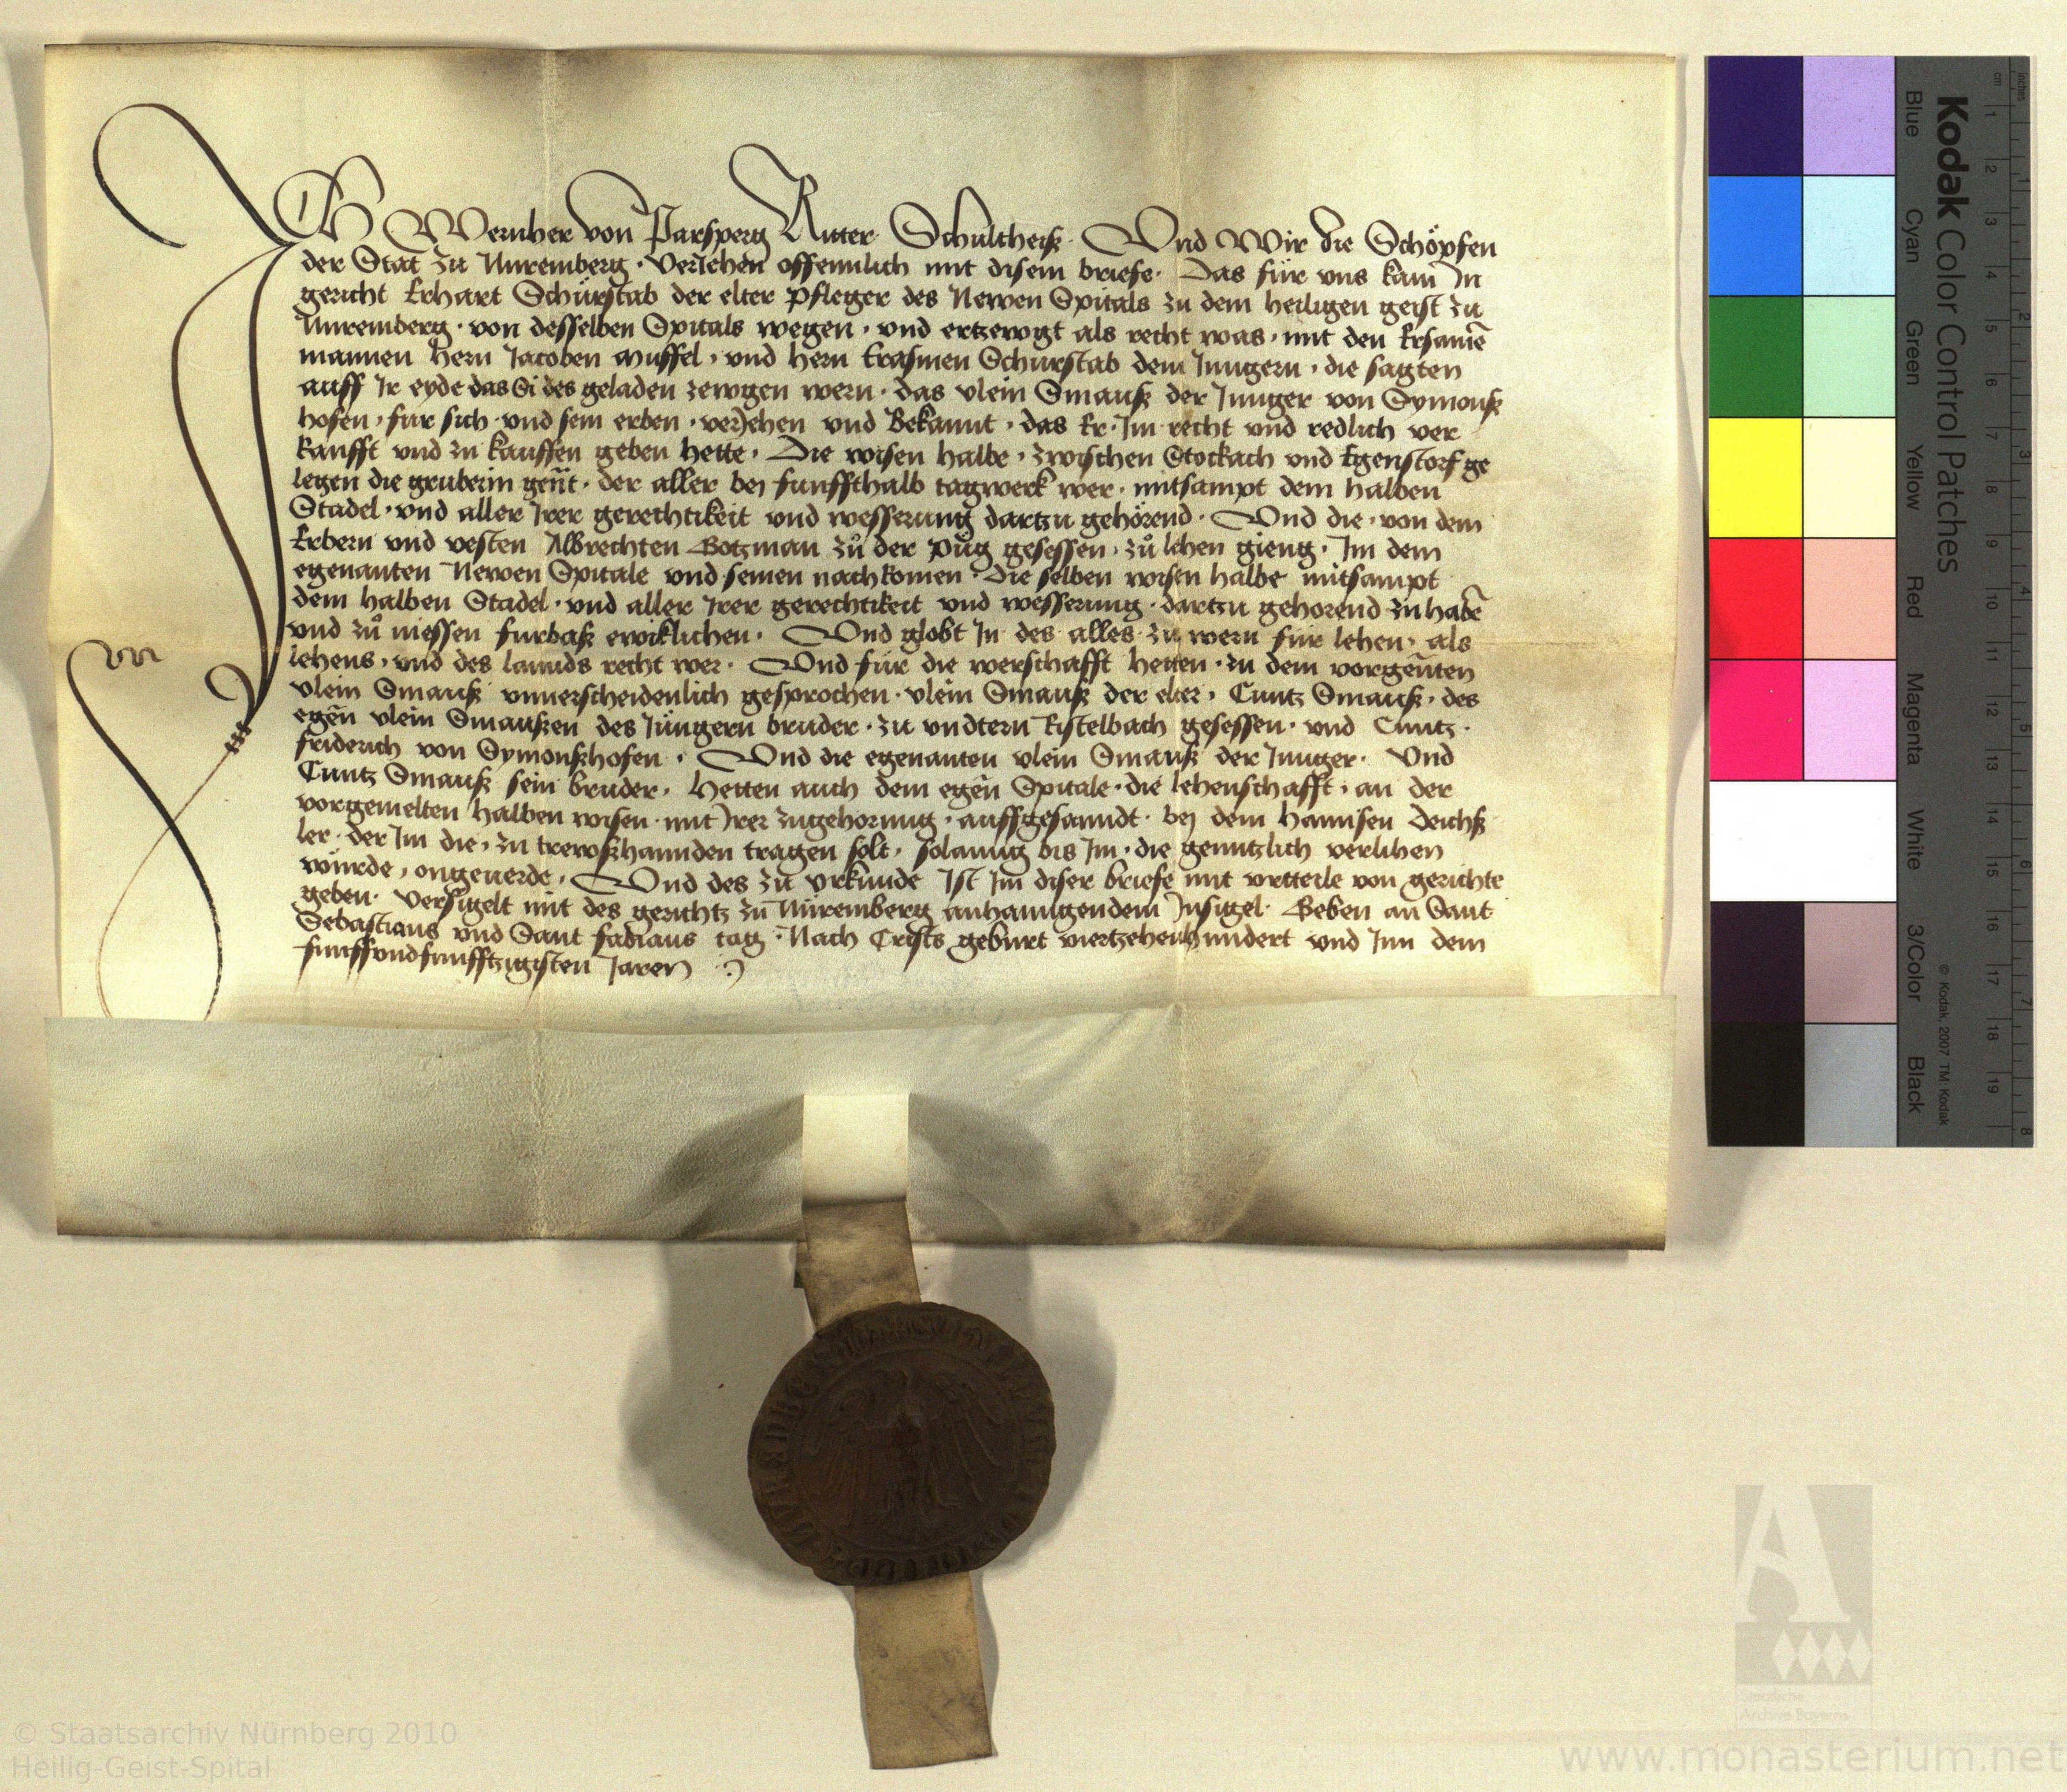 Ich Wernher von Parsperg Ritter Schultheiß · Vnd Wir die Schöpfen
der Stat zu Nuremberg · Veriehen offennlich mit disem briefe · Das für vns kam In
gericht Erhart Schürstab der elter Pfleger des Newen Spitals zu dem heiligen geist zu
Nuremberg · von desselben Spitals wegen · vnd ertzewgt als recht was · mit den Ersamē
mannen hern Jacoben Muffel · vnd hern Erasmen Schurstab dem Jungern · die sagten
auff Ir eyde das Si des geladen zewgen wern · das vlein Smauß der Junger von Symonß
hofen · für sich vnd sein erben · veriehen vnd Bekannt · das Er · Im recht vnd redlich ver
kaufft vnd zu kauffen geben hette · Die wisen halbe · zwischen Stockach vnd Egenstorf ge
legen die gruberin gen̄t · der aller bej funffthalb tagwerk wer · mitsampt dem halben
Stadel · vnd aller Irer gerechtikeit vnd wesserung dartzu gehörend · Vnd die · von dem
Erbern vnd vesten Albrechten Gotzman zů der Půg gesessen · zů lehen gieng · Im dem
egenanten Newen Spitale vnd seinen nachkomen · Die selben wisen halbe mitsampt
dem halben Stadel · vnd aller Irer gerechtikeit vnd wesserung · dartzu gehorend zu habē
vnd zů niessen furbaß ewiklichen · Vnd globt In des alles zu wern für lehen · als
lehens · vnd des lannds recht wer · Vnd für die werschafft hetten · zu dem vorgen̄ten
vlein Smauß vnuerscheidenlich gesprochen · vlein Smauß der elter · Cuntz Smauß · des
egen̄ vlein Smaußen des Jüngern bruder · zu vndtern Ristelbach gesessen · vnd Cuntz ·
friderich von Symonßhofen · Vnd die egenanten vlein Smauß der Junger · Vnd
Cuntz Smauß sein bruder · Hetten auch dem egen̄ Spitale · die lehenschafft · an der
vorgemelten halben wisen · mit Irer zugehorung · auffgesanndt · bej dem Hannsen Deichß
ler · der Im die · zu trewßhannden tragen solt · solanng bis Im · die genntzlich verlihen
würde · ongeuerde · Vnd des zu vrkunde Ist Im diser briefe mit vrtteile von gerichte
geben · Versigelt mit des gerichtz zu Nüremberg anhanngendem Insigel · Geben an Sant
Sebastians vnd Sant fabians tag · Nach Crists geburt viertzehenhundert vnd Inn dem
funffvndfunfftzigisten Jaren
Kodak Color Control Patches
Blue Cyan Green Yellow Red Magenta White 3/Color Black
© Kodak, 2007 TM: Kodak
inches 1 2 3 4 5 6 7 8
cm 1 2 3 4 5 6 7 8 9 10 11 12 13 14 15 16 17 18 19
Staatliche
Archive Bayerns
© Staatsarchiv Nürnberg 2010
Heilig-Geist-Spital
www.monasterium.net